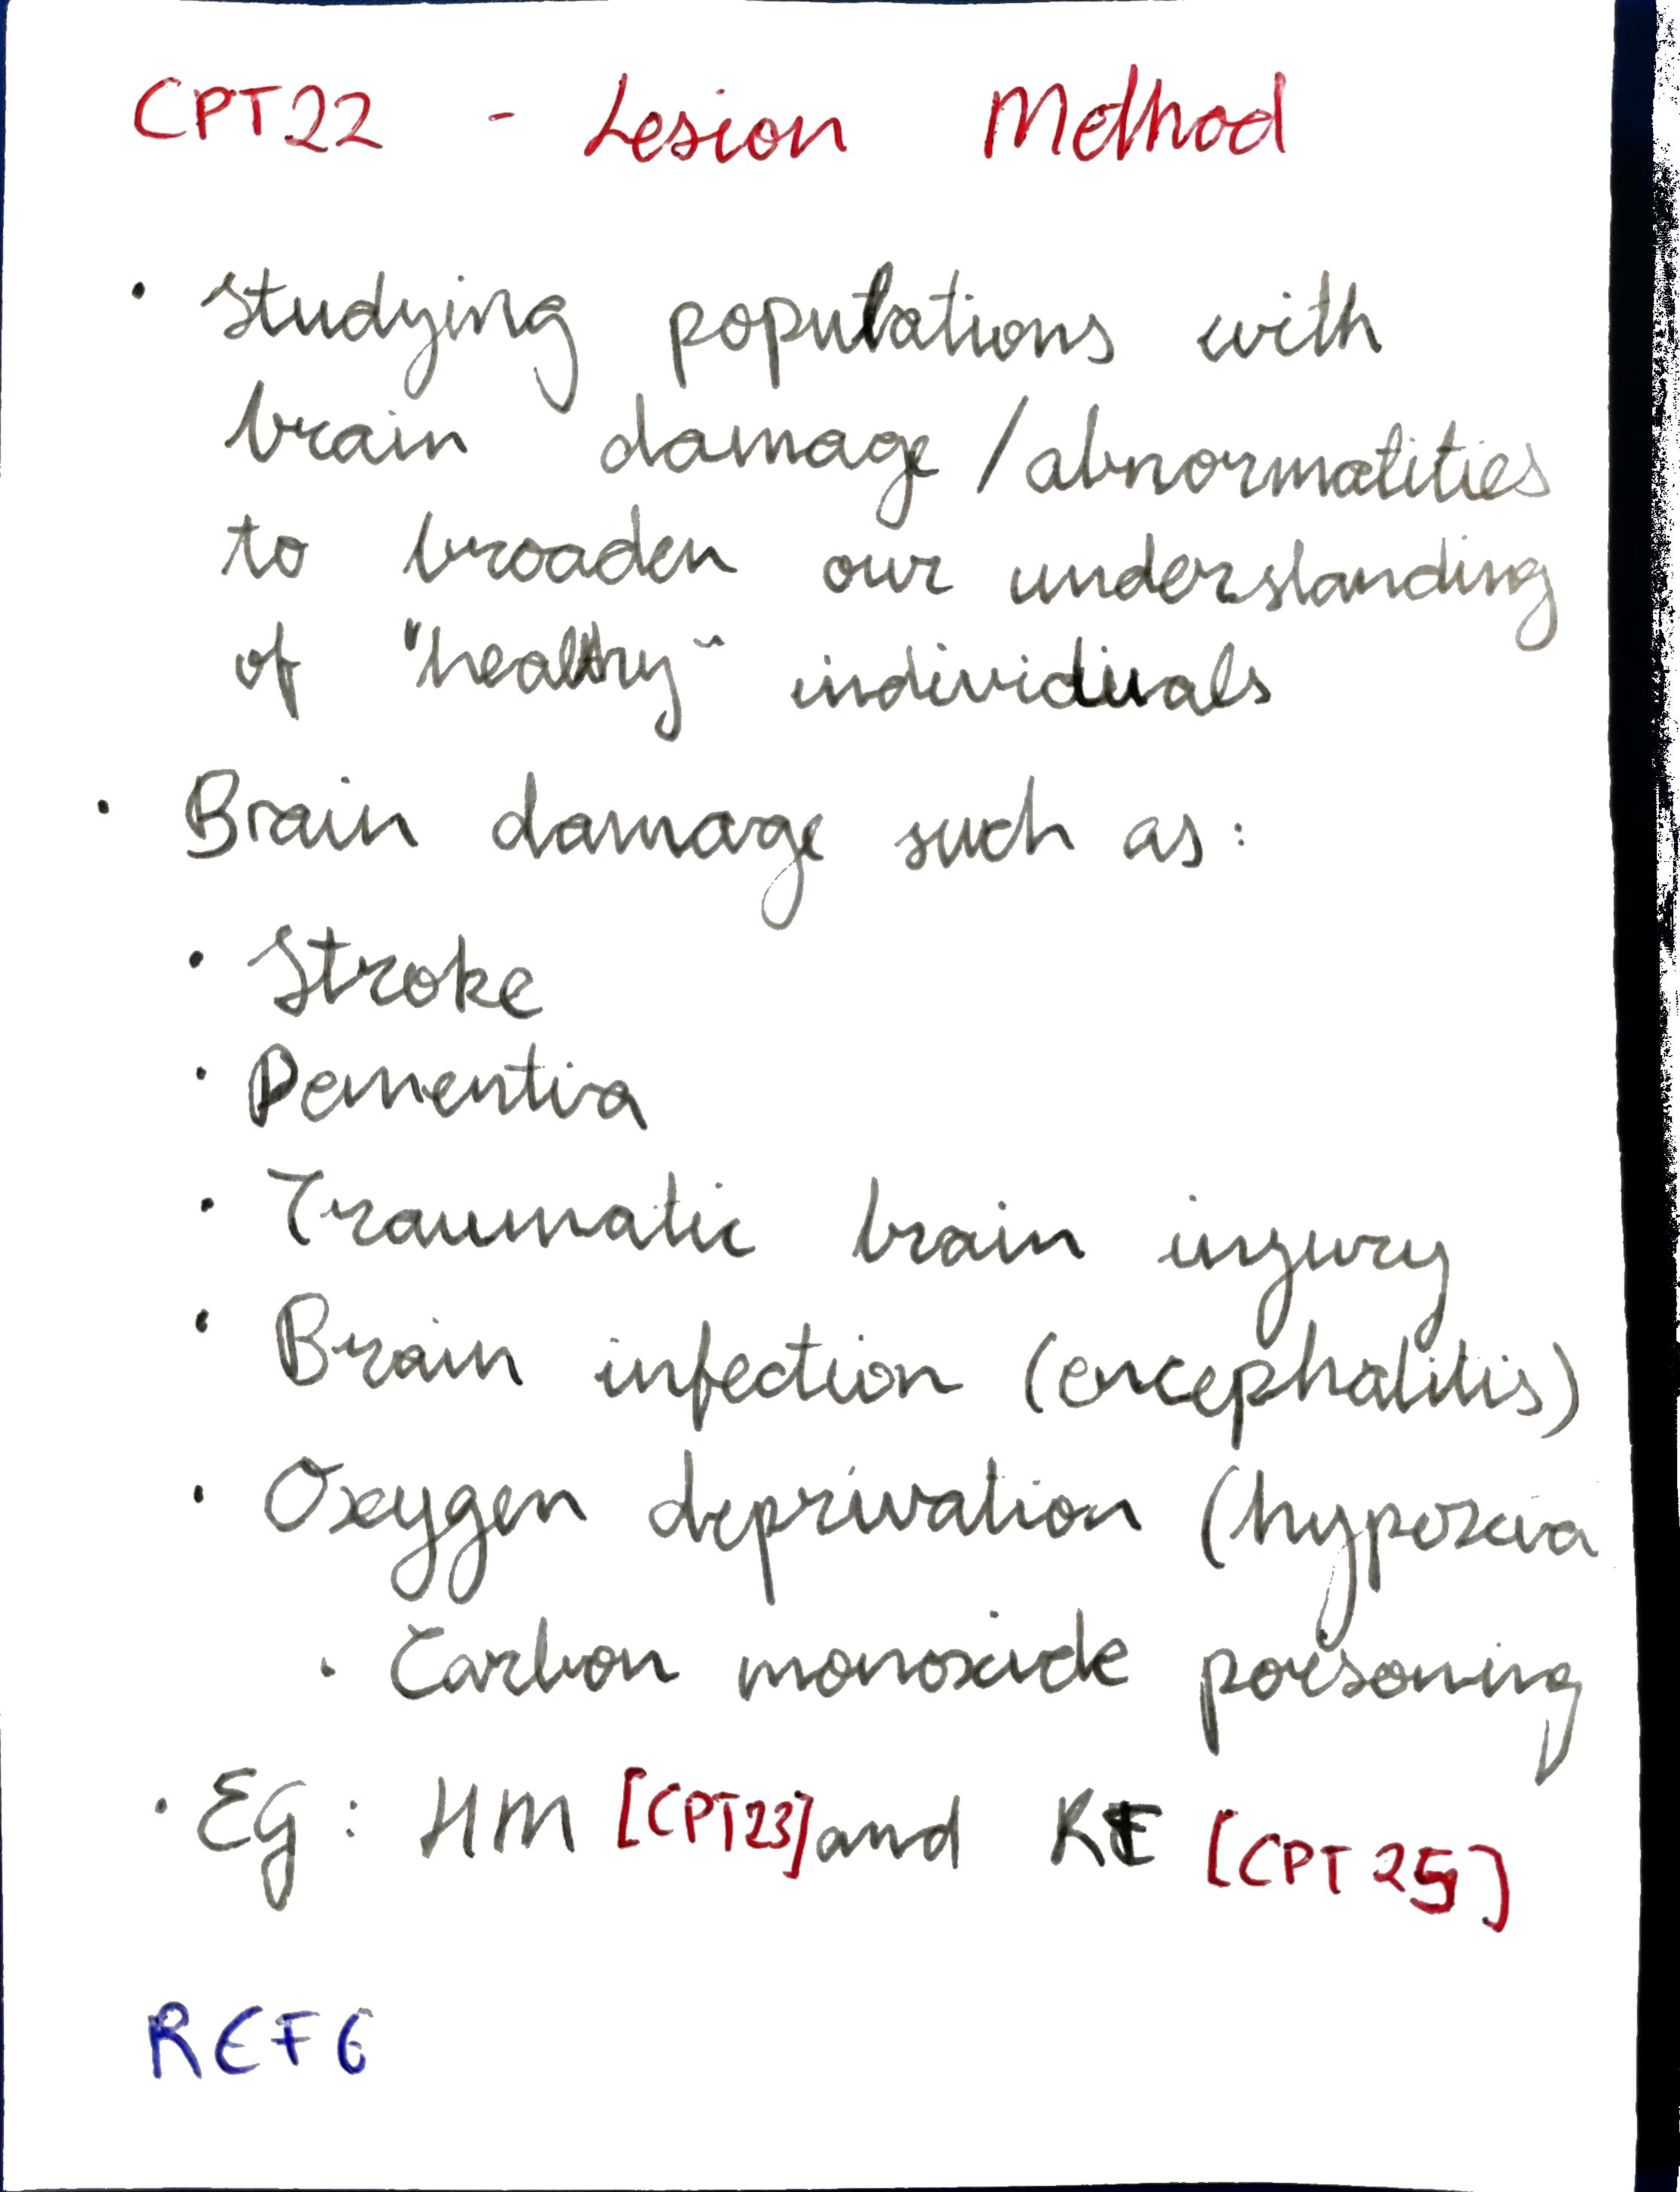 CPT22 - Lesion Method
• Studying populations with
brain damage / abnormalities
to broaden our understanding
of "healthy" individuals
• Brain damage such as:
• Stroke
• Dementia
• Traumatic brain injury
• Brain infection (encephalitis)
• Oxygen deprivation (hypoxia
• Carbon monoxide poisoning
• EG: HM [CPT23] and KF [CPT25]
REF6